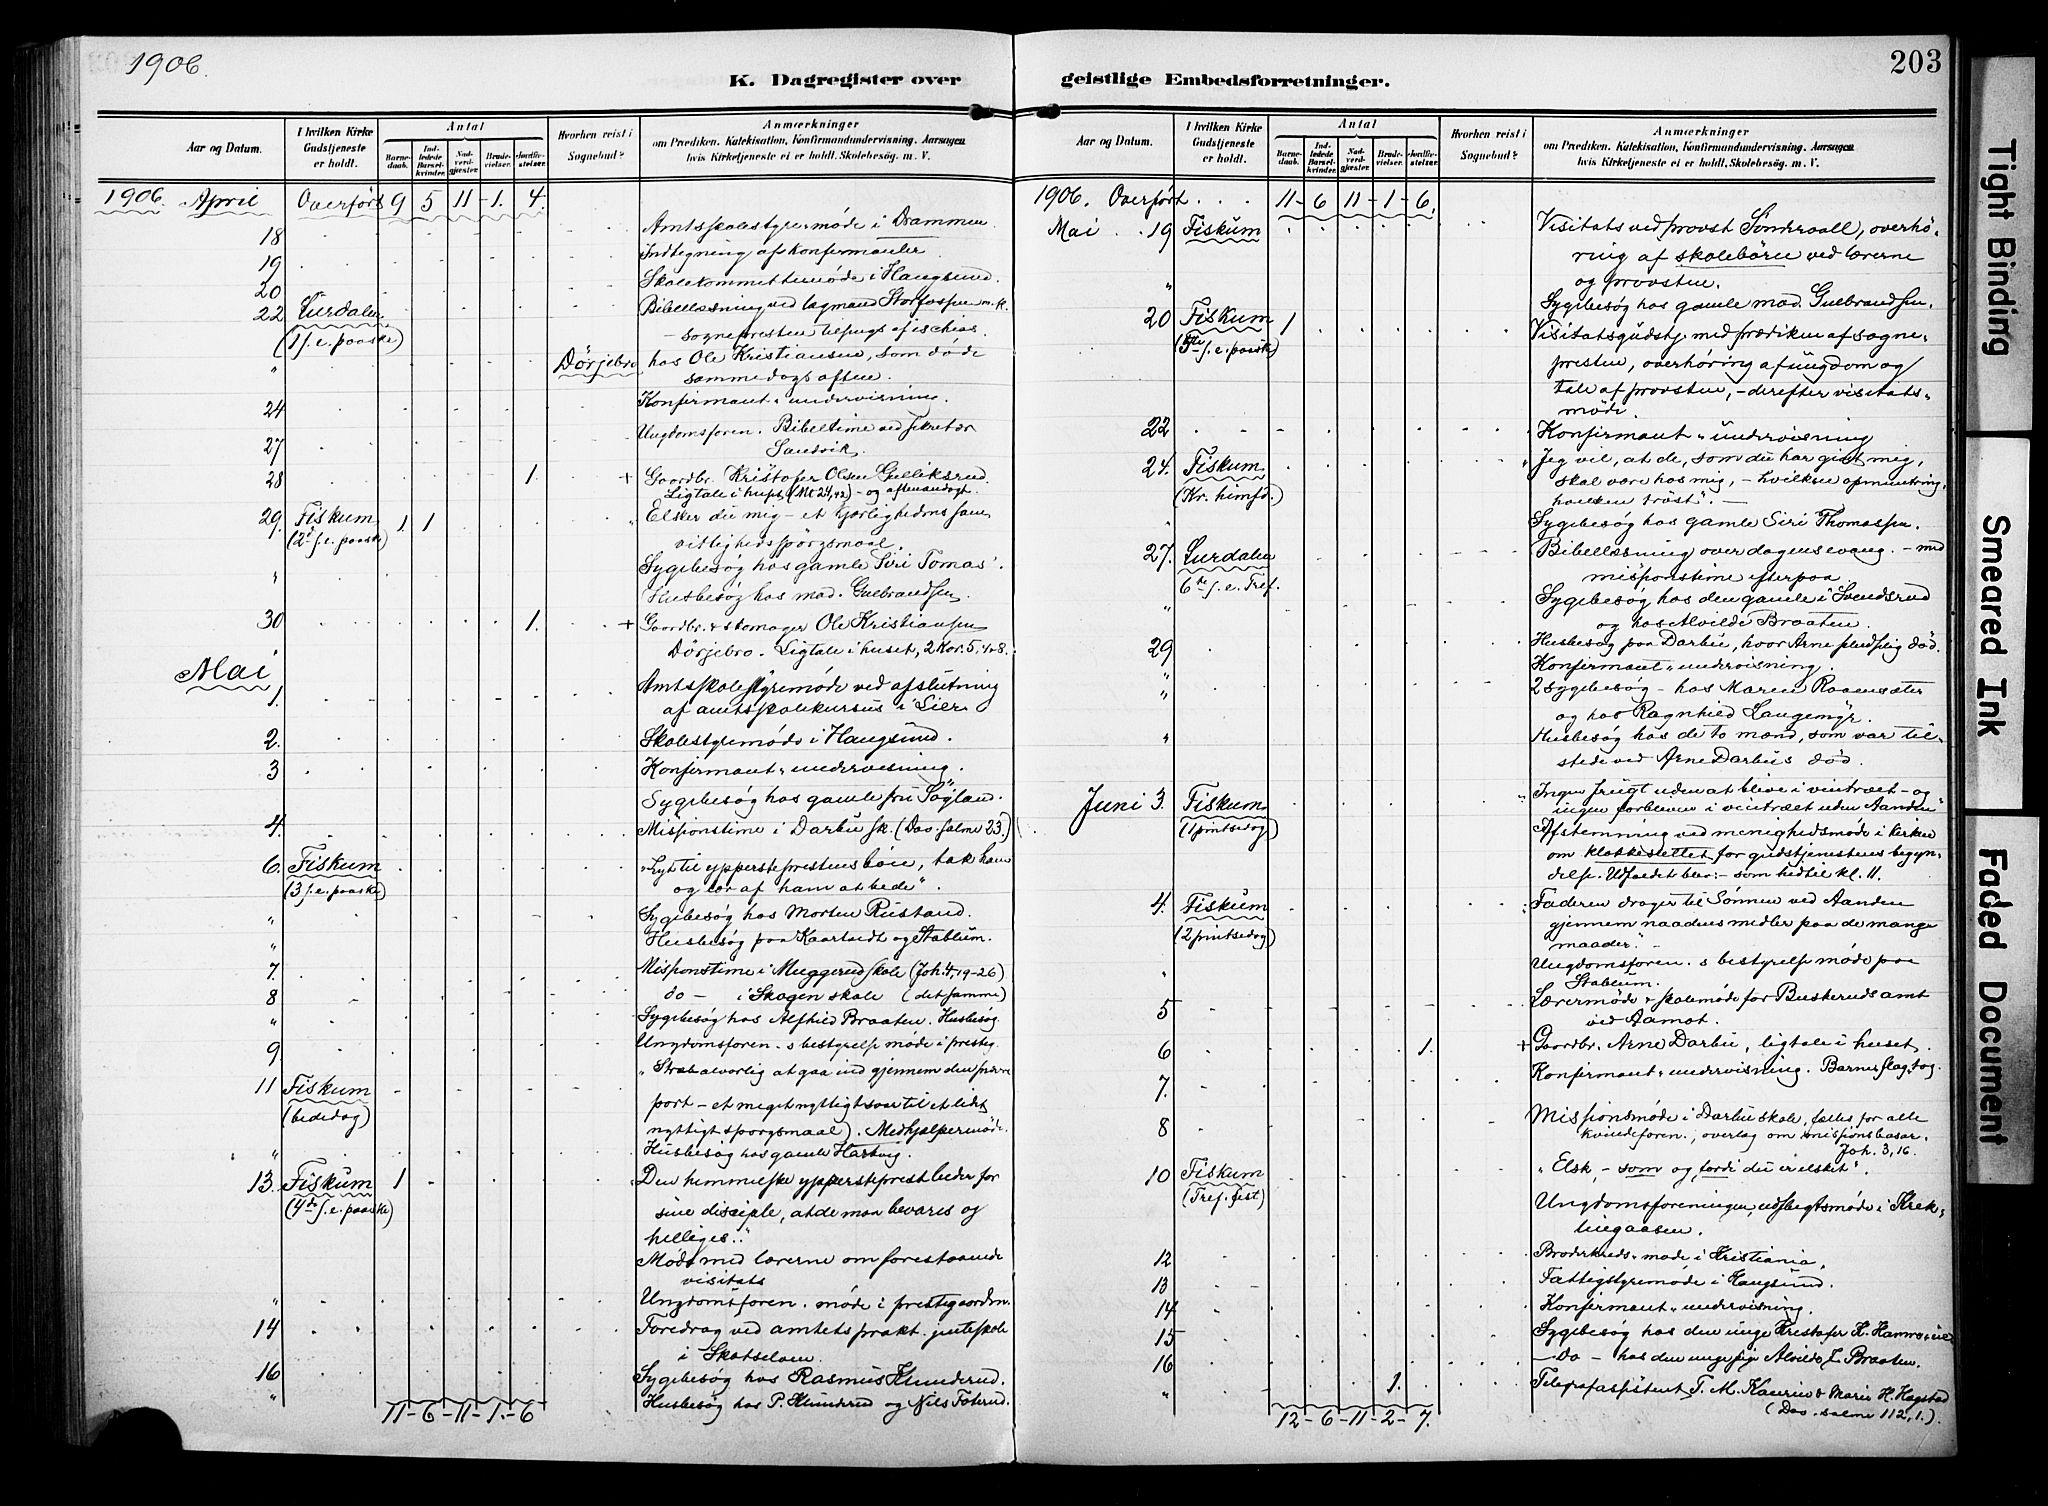 1906.
K. Dagregister over
Aar og Datum.
I hvilken Kirke Gudstjeneste er holdt.
Antal
Barnedaab.
Indledede Barselkvinder.
Nadverdgjester.
Brudevielser.
Jordfæstelser.
Hvorhen reist i Sognebud?
Anmærkninger
om Prædiken. Katekisation, Konfirmandundervisning. Aarsagen
hvis Kirketjeneste ei er holdt. Skolebesøg. m. V.
1906 April Overført 9 5 11 - 1. 4.
18 Amtsskolestyremøde i Drammen
19 Indtegning af konfirmanter
20 Skolekommittemøde i Haugsund.
22 Bibellæsning ved lagmand
(1 s. e. paaske) - sognepresten af ischias.
" Dörjebro hos Ole Kristiansen, som døde
samme dags aften.
24 Konfirmant-undervisning.
27 Ungdomsforen. Bibeltime ved sekretær
Sandvik.
28 1. + Gaardbr. Kristofer Olsen Gulliksrud.
Ligtale i huset (Mt 24,42) - og aftenandagt.
29. Fiskum 1. 1 "Elsker du mig - et kjærlighedens sam
(2d s. e. paaske) vittighedsspörgsmaal.
" Sygebesøg hos gamle Siri Tomas'.
Husbesøg hos mad. Gulbrandsen.
30 1. + Gaardbr. & skomager Ole Kristiansen
Dörjebro. Ligtale i huset, 2 Kor. 5, 4-8.
Mai
1. Amtsskolestyremøde ved afslutning
af amtsskolekursus i Lier
2. Skolestyremøde i Haugsund.
3 Konfirmant-undervisning.
Sygebesøg hos gamle fru
4. Missionstime i Darbu sk. (Dav. salme 23.)
6. Fiskum "Lyt til yppersteprestens bøn, tak ham
(3 s. e. paaske) og lær af ham at bede".
" Sygebesøg hos Morten Rustand.
" Husbesøg paa Kaartvedt og Stablum.
7. Missionstime i Muggerud skole (Joh. 4, 19-26)
8 do - i Skogen skole (det samme)
" Sygebesøg hos Alfhild Braaten. Husbesøg
9 Ungdomsforen.s bestyrelsemøde i prestg.
11 Fiskum "Stræb alvorlig at gaa ind gjennem den snevre
(bededag) port - et meget nyttigt svar til et lidt
nyttigt spørgsmaal). Medhjælpermøde.
" Husbesøg hos gamle Hartvig.
13. Fiskum 1 "Den himmelske yppersteprest beder for
(4de s. e. paaske) sine disciple, at de maa bevares og
helliges."
Møde med lærerne om forestaaende
visitats
" Ungdomsforen. møde i prestegaarden.
14 Foredrag ved amtets prakt. jenteskole
i Skotselven.
16 Sygebesøg hos Rasmus Klunderud.
" Husbesøg hos P. Klunderud og Nils
11 - 6 - 11 - 1 - 6
203
geistlige Embedsforretninger.
Aar og Datum.
I hvilken Kirke Gudstjeneste er holdt.
Antal
Barnedaab.
Indledede Barselkvinder.
Nadverdgjester.
Brudevielser.
Jordfæstelser.
Hvorhen reist i Sognebud?
Anmærkninger
om Prædiken, Katekisation, Konfirmandundervisning, Aarsagen
hvis Kirketjeneste ei er holdt, Skolebesøg. m. V.
1906. Overført 11 - 6 11 - 1 - 6.
Mai 19 Fiskum Visitats ved provst Sönderaall, overhø-
ring af skolebörn ved lærerne
og provsten.
" Sygebesøg hos gamle mad. Gulbrandsen.
20 Fiskum 1 Visitatsgudstj. med prædiken af sogne-
(5te s. e. paaske) presten, overhöring af ungdom og
tale af provsten, - derefter visitats-
møde.
22 Konfirmant-undervisning
24. Fiskum "Jeg vil, at de, som du har givet mig,
(Kr. himfd.) skal være hos mig, - hvilken opmuntring,
hvilken trøst". -
" Sygebesøg hos gamle Siri Thomassen.
27. Bibellæsning over dagens evang. - med
6te s. e. missionstime efterpaa.
" Sygebesøg hos den gamle i Svendsrud
og hos Alvilde Braaten.
29 Husbesøg paa Darbu, hvor Arne pludselig død.
" Konfirmant-undervisning.
" 2 sygebesøg - hos Maren Raamsæter
og hos Ragnhild Langemyr.
" Husbesøg hos de to mænd, som var til-
stede ved Arne Darbus død.
Juni 3. Fiskum "Ingen frugt uden at blive i vintræet - og
(1 pintsedag) ingen forbliven i vintræet uden Aanden"
Afstemning ved menighedsmøde i kirken
om klokkeslettet for gudstjenestens begyn-
delse. Udfaldet blev: - som hedtil kl. 11.
4. Fiskum "Faderen drager til Sønnen ved Aanden
(2 pintsedag) gjennem naadens midler paa de mange
maader". -
" Ungdomsforen.s bestyrelsemøde paa
Stablum.
5 Lærermøde & skolemøde for Buskeruds amt
ved Aamot.
6 1. + Gaardbr. Arne Darbu, ligtale i huset.
7. Konfirmant-undervisning. Barneflagtog.
8 Missionsmøde i Darbu skole, fælles for alle
kvindeforen., overlæg om missionsbasar.
Joh. 3, 16.
10 Fiskum "Elsk, - som og fordi du er elsket".
(Tref. fest) Ungdomsforeningens udflugtsmøde i Krek-
lingaasen.
12 Broderkreds-møde i Kristiania.
13 Fattigstyremøde i Haugsund.
14 Konfirmant-undervisning.
15 Sygebesøg hos den unge Kristofer H.
16 - Do - hos den unge pige Alvilde L. Braaten.
" 1. Telegrafassistent T. M. Kaurin & Marie H. Hagstad
(Dav. salme 112, 1.).
12 - 6 - 11 - 2 - 7.
Tight Binding
Smeared Ink
Faded Document